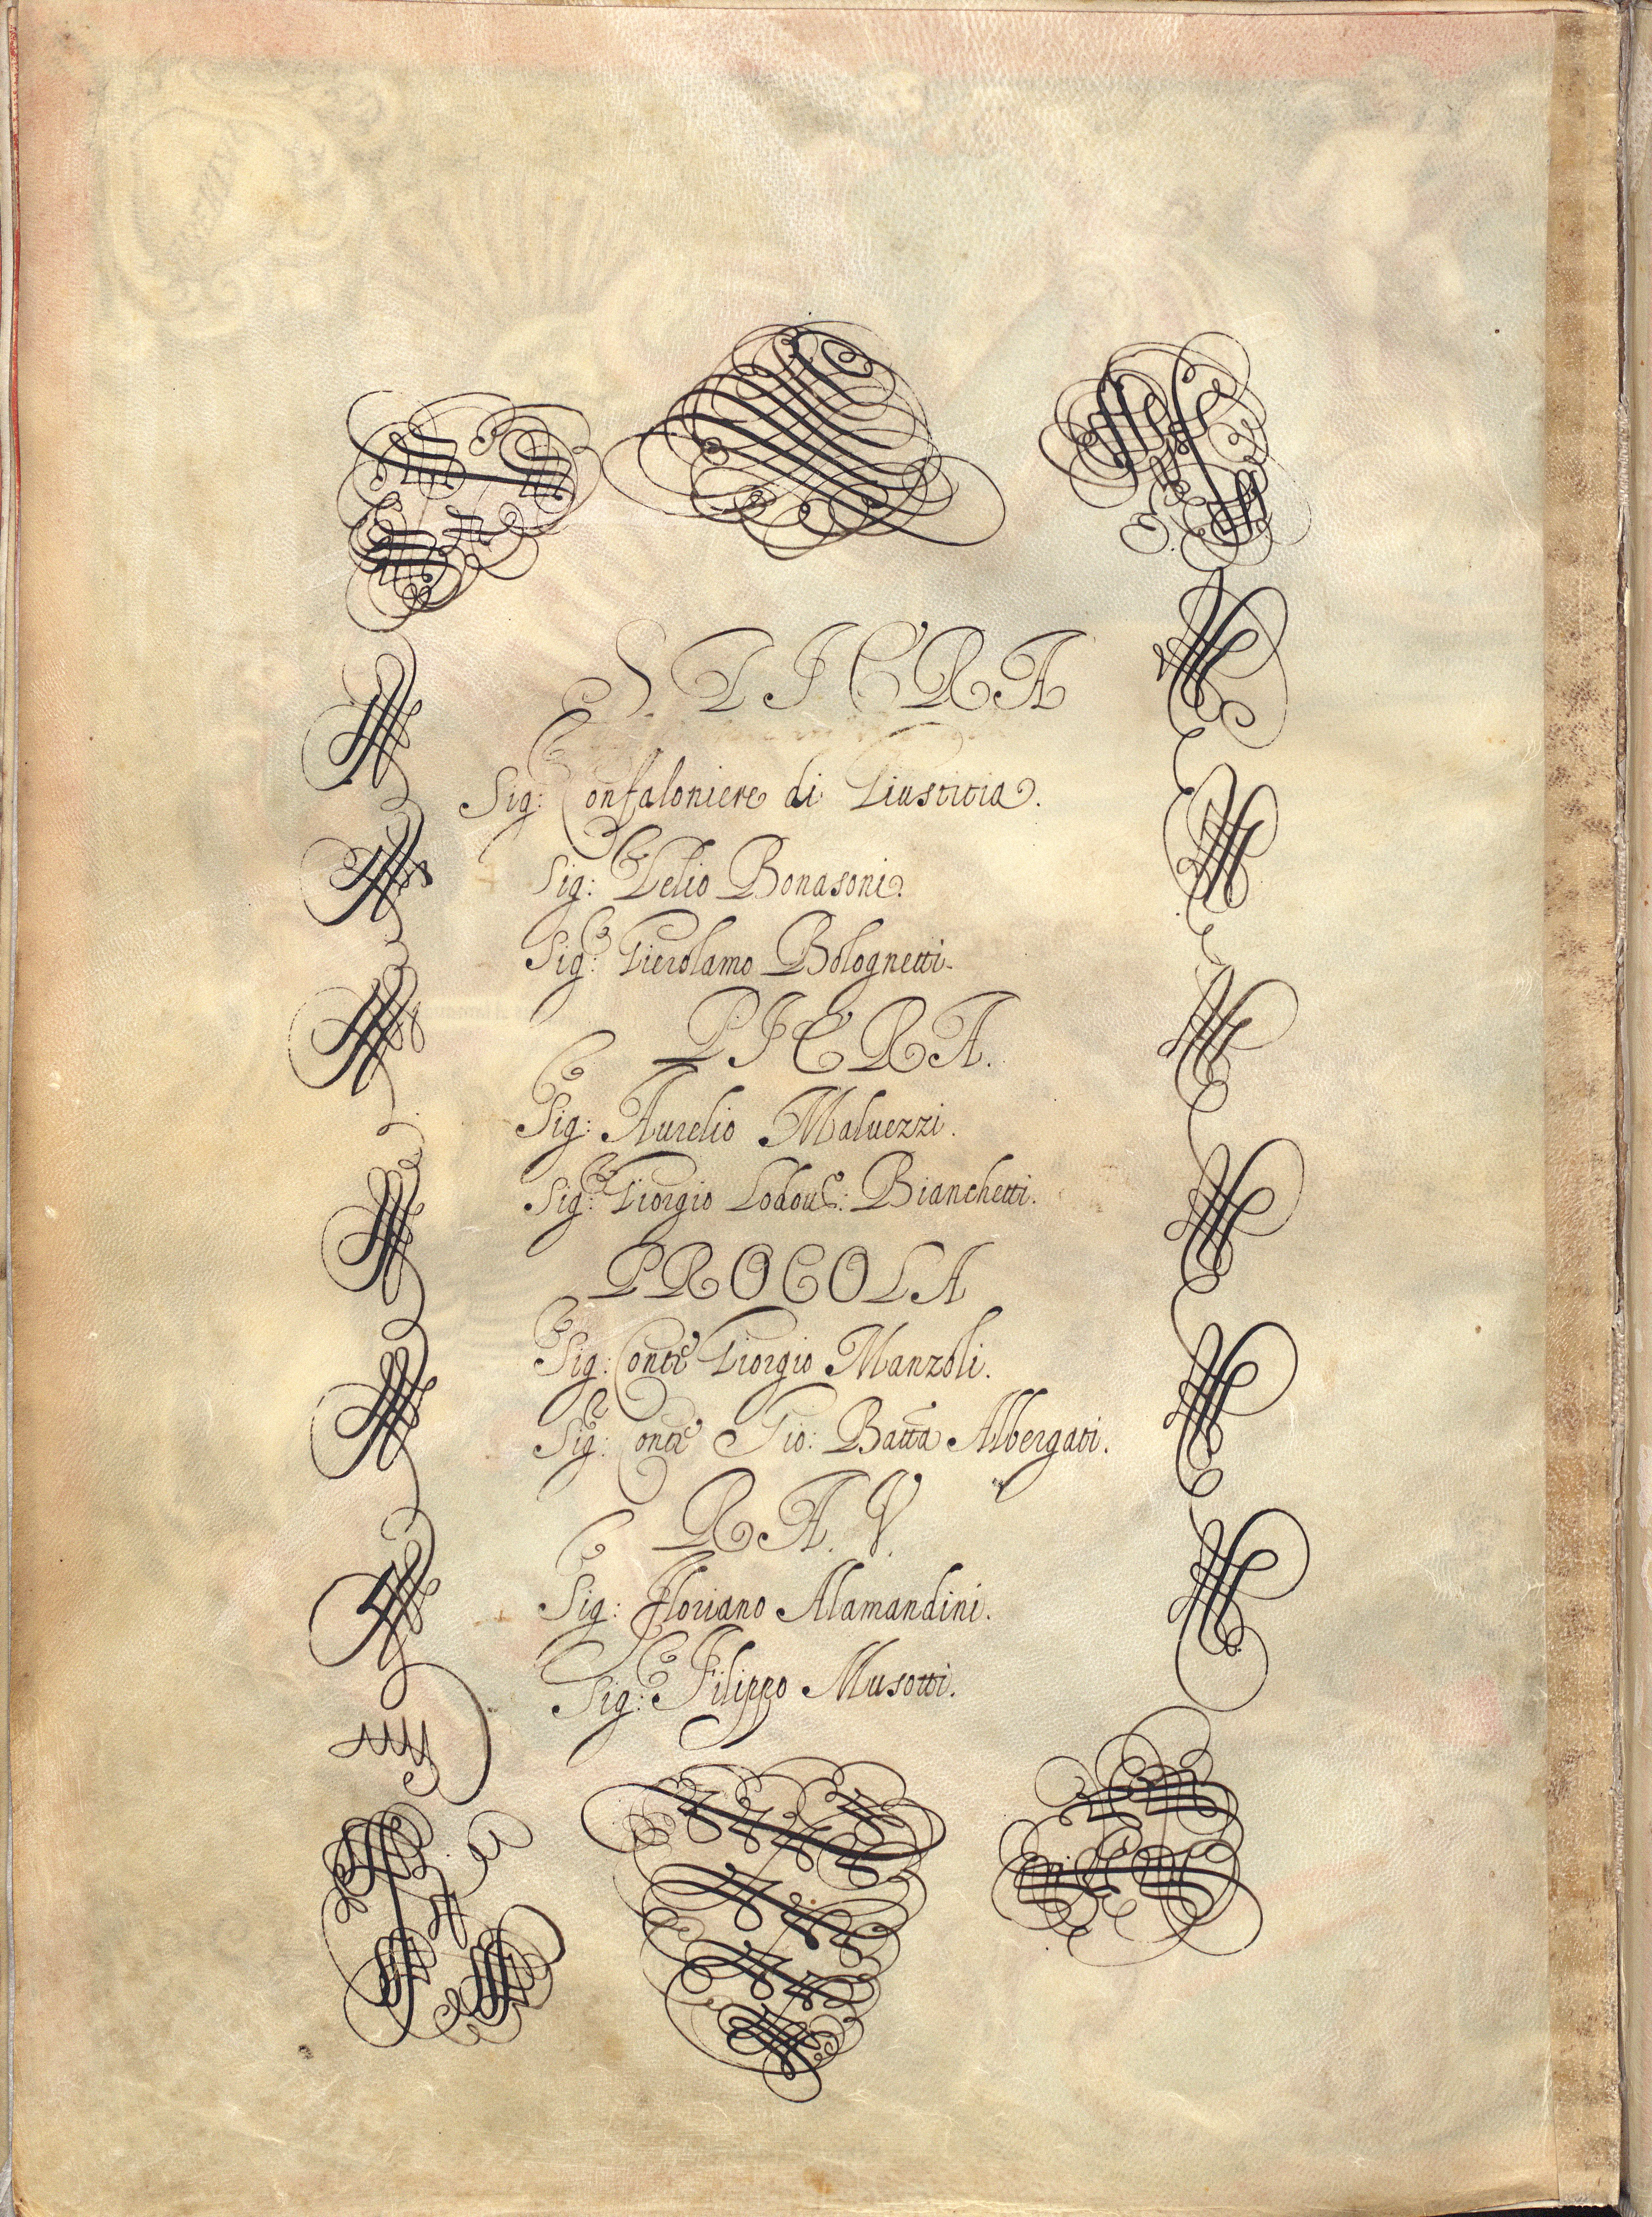 S. TICRA
Sig: Confaloniere di Giustitia.
Sig: Lelio Bonasoni.
Sig: Gierolamo Bolognetti.
PICRA.
Sig: Aurelio Maluezzi.
Sig: Giorgio Lodou: Bianchetti.
PROCOLA
Sig: Conte Giorgio Manzoli.
Sig: Conte Gio: Batta Albergati.
R A. V.
Sig: Floriano Alamandini.
Sig: Filippo Musotti.